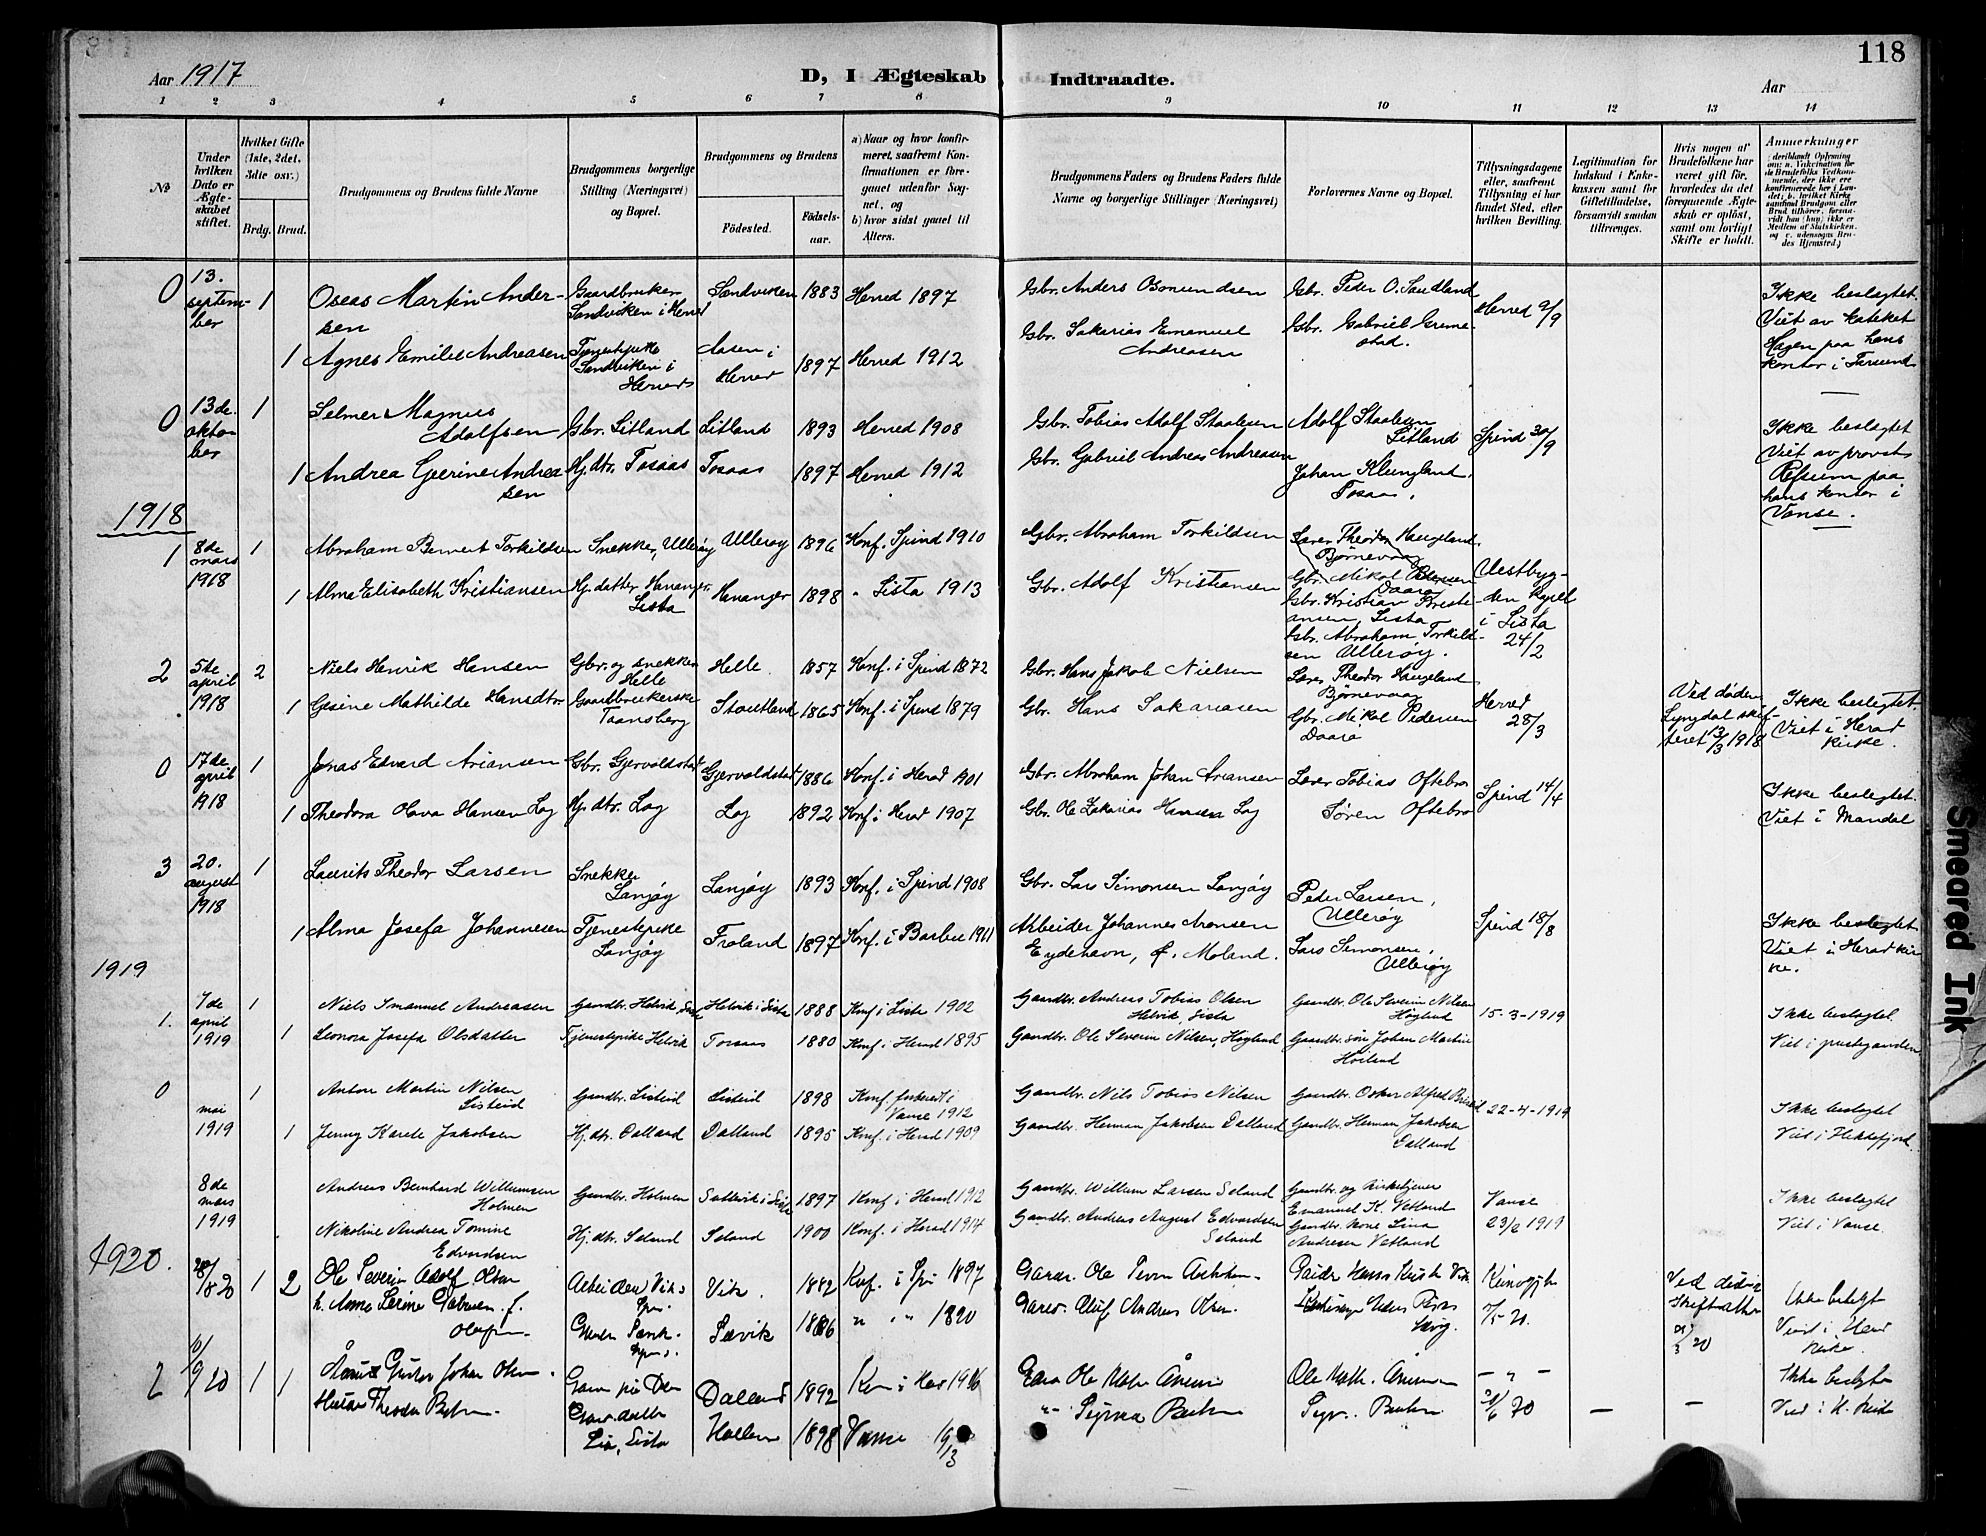 118
Aar 1917
D, I Ægteskab Indtraadte.
Aar
1 2 3 4 5 6 7 8 9 10 11 12 13 14
No
Under hvilken Dato er Ægteskabet stiftet.
Hvilket Gifte (1ste, 2det, 3die osv.)
Brdg. Brud.
Brudgommens og Brudens fulde Navne
Brudgommens borgerlige Stilling (Næringsvei) og Bopæl.
Brudgommens og Brudens
Födested.
Födselsaar.
a) Naar og hvor konfirmeret, saafremt Konfirmationen er foregaaet udenfor Sognet, og
b) hvor sidst gaaet til Alters.
Brudgommens Faders og Brudens Faders fulde Navne og borgerlige Stillinger (Næringsvei)
Forlovernes Navne og Bopæl.
Tillysningsdagene eller, saafremt Tillysning ei har fundet Sted, efter hvilken Bevilling.
Legitimation for Indskud i Enkekassen samt for Giftetilladelse, forsaavidt saadan tiltrænges.
Hvis nogen af Brudefolkene har været gift før, hvorledes da det foregaaende Ægteskab er opløst, samt om lovligt Skifte er holdt.
Anmærkninger
0 13. september 1 Oseas Martin Andersen Gaardbruker Sandviken i Herred Sandviken 1883 Herred 1897 Gbr. Anders Osmundsen Gbr. Peder O. Sandland Herred 9/9 Ikke beslegtet. Viet av kateket Hagen paa hans kontor i Farsund
1 Agnes Emilie Andreasen Tjenestepike Sandviken i Herred Aasen i Herred 1897 Herred 1912 Gbr. Sakarias Emanuel Andreasen Gbr. Gabriel Grimestad.
0 13de oktober 1 Selmer Magnus Adolfsen Gbr. Litland Litland 1893 Herred 1908 Gbr. Tobias Adolf Staalesen Adolf Staalesen Litland Spind 30/9 Ikke beslegtet Viet av provst Refsum paa hans kontor i Vanse.
1 Andrea Gjerine Andreasen Hj.dtr. Tosaas Tosaas 1897 Herred 1912 Gbr. Gabriel Andreas Andreasen Johan Klungland, Tosaas.
1918
1 8de mars 1918 1 Abraham Bernert Torkildsen Snekker, Ullerøy Ullerøy 1896 Konf. Spind 1910 Gbr. Abraham Torkildsen Lærer Theodor Haugeland, Bjørnevaag Gbr. Mikal Pedersen Daara Vestbygden kapel i Lista 24/2
1 Alma Elisabeth Kristiansen Hj.datter Hananger, Lista Hananger 1898 " Lista 1913 Gbr. Adolf Kristiansen Gbr. Kristian Kristiansen, Lista Gbr. Abraham Torkildsen Ullerøy.
2 5te april 1918 2 Niels Henrik Hansen Gbr. og snekker Helle Helle 1857 Konf. i Spind 1872 Gbr. Hans Jakob Nielsen Lærer Theodor Haugeland Bjørnevaag Herred 28/3 Ved døden Lyngdal skifteret 13/3 1918 Ikke beslegtet. Viet i Herad kirke.
1 Gesine Mathilde Hansdtr. Gaardbrukerske Taansberg Stoutland 1865 Konf. i Spind 1879 Gbr. Hans Sakariasen Gbr. Mikal Pedersen Daara
0 17de april 1918 1 Jonas Edvard Ariansen Gbr. Gjervoldstad Gjervoldstad 1886 Konf. i Herad 1901 Gbr. Abraham Johan Ariansen Lærer Tobias Oftebro Spind 14/4 Ikke beslegtet. Viet i Mandal
1 Theodora Olava Hansen Log Hj.dtr. Log Log 1892 Konf. i Herad 1907 Gbr. Ole Zakarias Hansen Log Søren Oftebro
3 20. august 1918 1 Laurits Theodor Larsen Snekker Langøy Langøy 1893 Konf. i Spind 1908 Gbr. Lars Simonsen Langøy Peder Larsen, Ullerøy Spind 18/8 Ikke beslegtet Viet i Herad kirke.
1 Alma Josefa Johannesen Tjenestepike Langøy Froland 1897 Konf. i Barbu 1911 Arbeider Johannes Aronsen Eydehavn, Ø. Moland. Lars Simonsen, Ullerøy
1919
1. 7de april 1919 1 Niels Imanuel Andreasen Gaardbr. Helvik, Lista Helvik i Lista 1888 Konf i Lista 1902 Gaardbr. Andreas Tobias Olsen Helvik, Lista Gaardbr. Ole Severin Nilsen Høyland 15-3-1919 Ikke beslegtet. Viet i prestegaarden
1 Leonora Josefa Olsdatter Tjenestepike Helvik Tosaas 1880 Konf. i Herad 1895 Gaardbr. Ole Severin Nilsen, Høgland Gaardbr. søn Johan Martin Høiland
0 mai 1919 1 Anton Martin Nilsen Listeid Gaardbr. Listeid Listeid 1898 Konf. i Vanse 1912 Gaardbr. Nils Tobias Nilsen Gaardbr. Oskar Alfred 22-4-1919 Ikke beslegtet Viet i Flekkefjord
1 Jenny Karele Jakobsen Hj.dtr. Dalland Dalland 1895 Konf. i Herad 1909 Gaardbr. Herman Jakobsen Dalland Gaardbr. Herman Jakobsen Dalland
8de mars 1919 Andreas Bernhard Willumsen Holmen Gaardbr. Holmen i Lista 1897 Konf. i Herad 1912 Gaardbr. William Larsen Seland Gaardbr. og kirketjener Emanuel K. Vetland Vanse 23/2 1919 Ikke beslegtet Viet i Vanse.
Nikoline Andrea Tomine Edvardsen Hj.dtr. Seland Seland 1900 Konf. i Herad 1914 Gaardbr. Andreas August Edvardsen Seland Gaardbr. kone Lina Andresen Vetland
1920.
1 2 Ole Severin Adolf Olsen Vik. 1882 Konf. i Sp. 1897 7/5 20. Ikke beslegt Viet i Herad kirke.
Sævik 1886 " " 1820 Andreas Olsen.
2 1 1 Gustav Johan Olsen. Dalland 1892 1916 Ole Ikke beslegte Viet i H. Kirke
Theodor Lista 1898 Vanse 19/13 21/6 20 – –
Smeared Ink